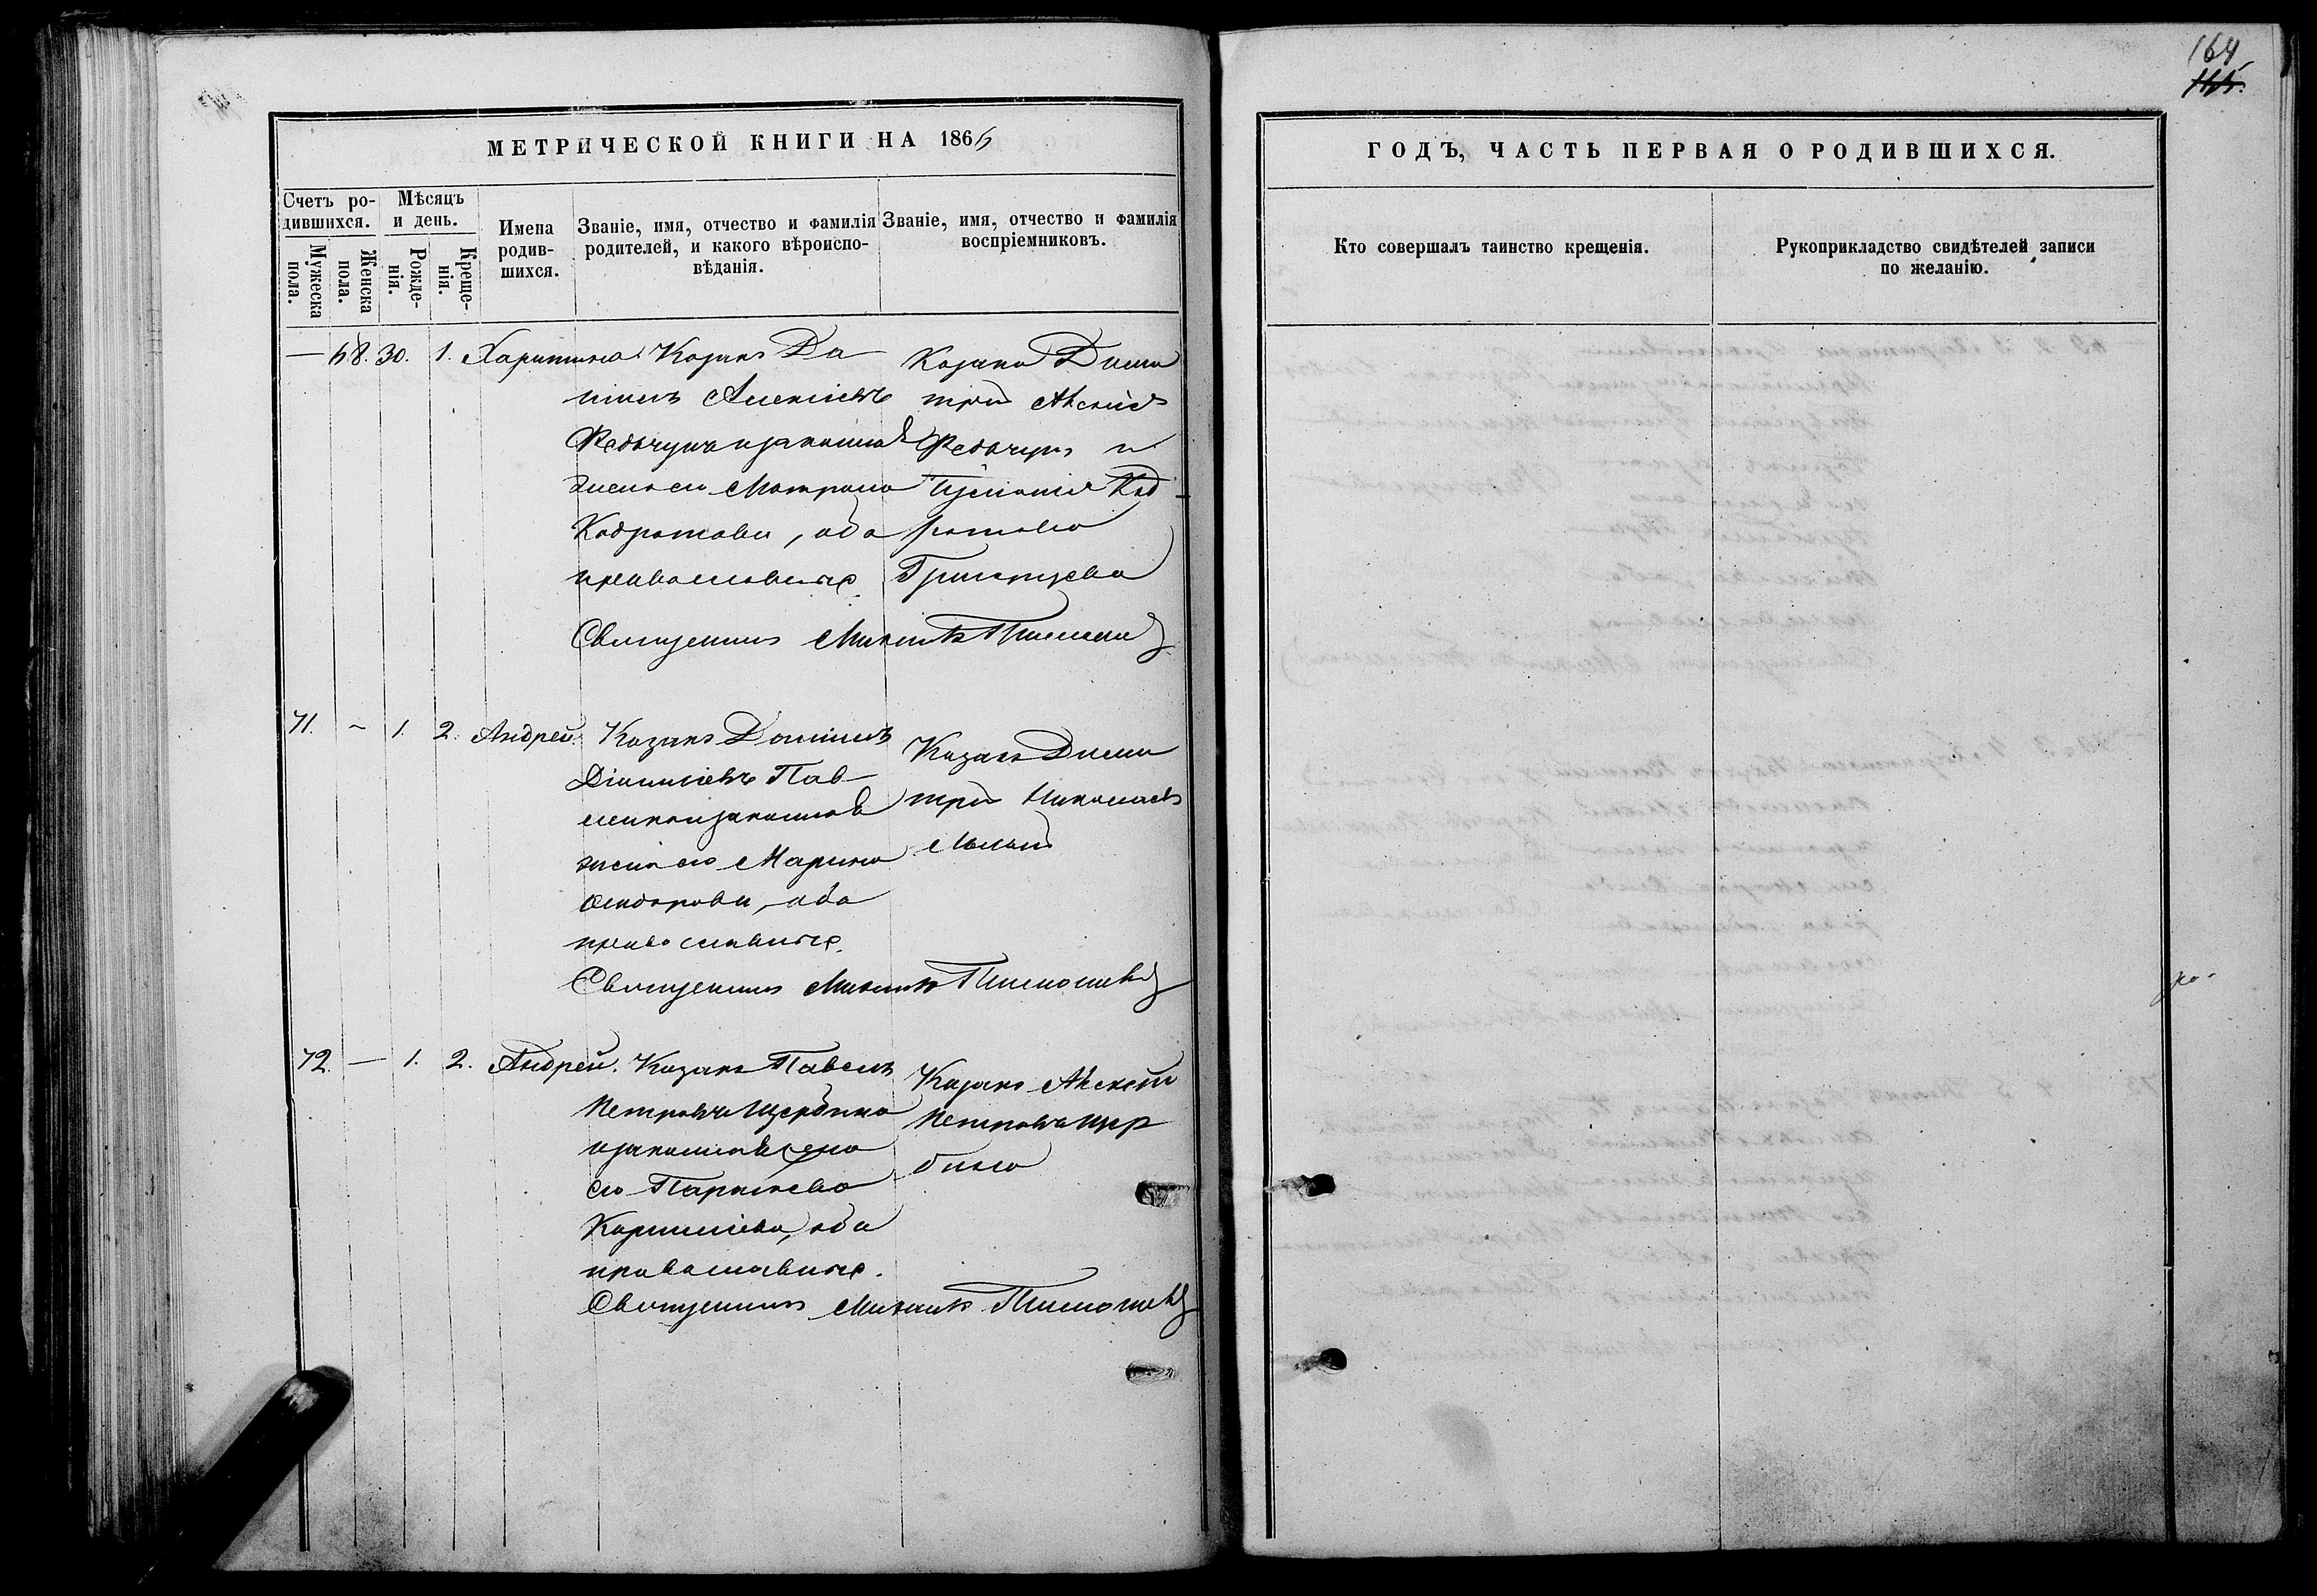 164
115.
МЕТРИЧЕСКОЙ КНИГИ НА 1866
ГОДЪ, ЧАСТЬ ПЕРВАЯ О РОДИВШИХСЯ.
Счетъ ро-
дившихся.
Мужеска
пола.
Женска
пола.
Мѣсяцъ
и день.
Рожде-
нія.
Креще-
нія.
Имена
родив-
шихся.
Званіе, имя, отчество и фамилія
родителей, и какого вѣроиспо-
вѣданія.
Званіе, имя, отчество и фамилія
воспріемниковъ.
Кто совершалъ таинство крещенія.
Рукоприкладство свидѣтелей записи
по желанію.
— 68. 30. 1. Харитина. Козакъ Да
ніилъ Алексіевъ
Редъчунъ и законная
жена его Матрона
Кодратова, оба
православные.
Козакъ Дими
трій
Редъчунъ и
Код
ратова
Священникъ Михаилъ
71. ~ 1. 2. Андрей. Козакъ Даніилъ
Діонисіевъ Пав
ленко и законная
жена его Марина
Сидорова, оба
православные.
Козакъ Дими
трій Николаевъ
Малый
Священникъ Михаилъ
72. — 1. 2. Андрей. Козакъ Павелъ
Петровъ Щербина
и законная жена
его Параскева
оба
православные.
Козакъ Алексѣй
Петровъ Щер
бина
Священникъ Михаилъ